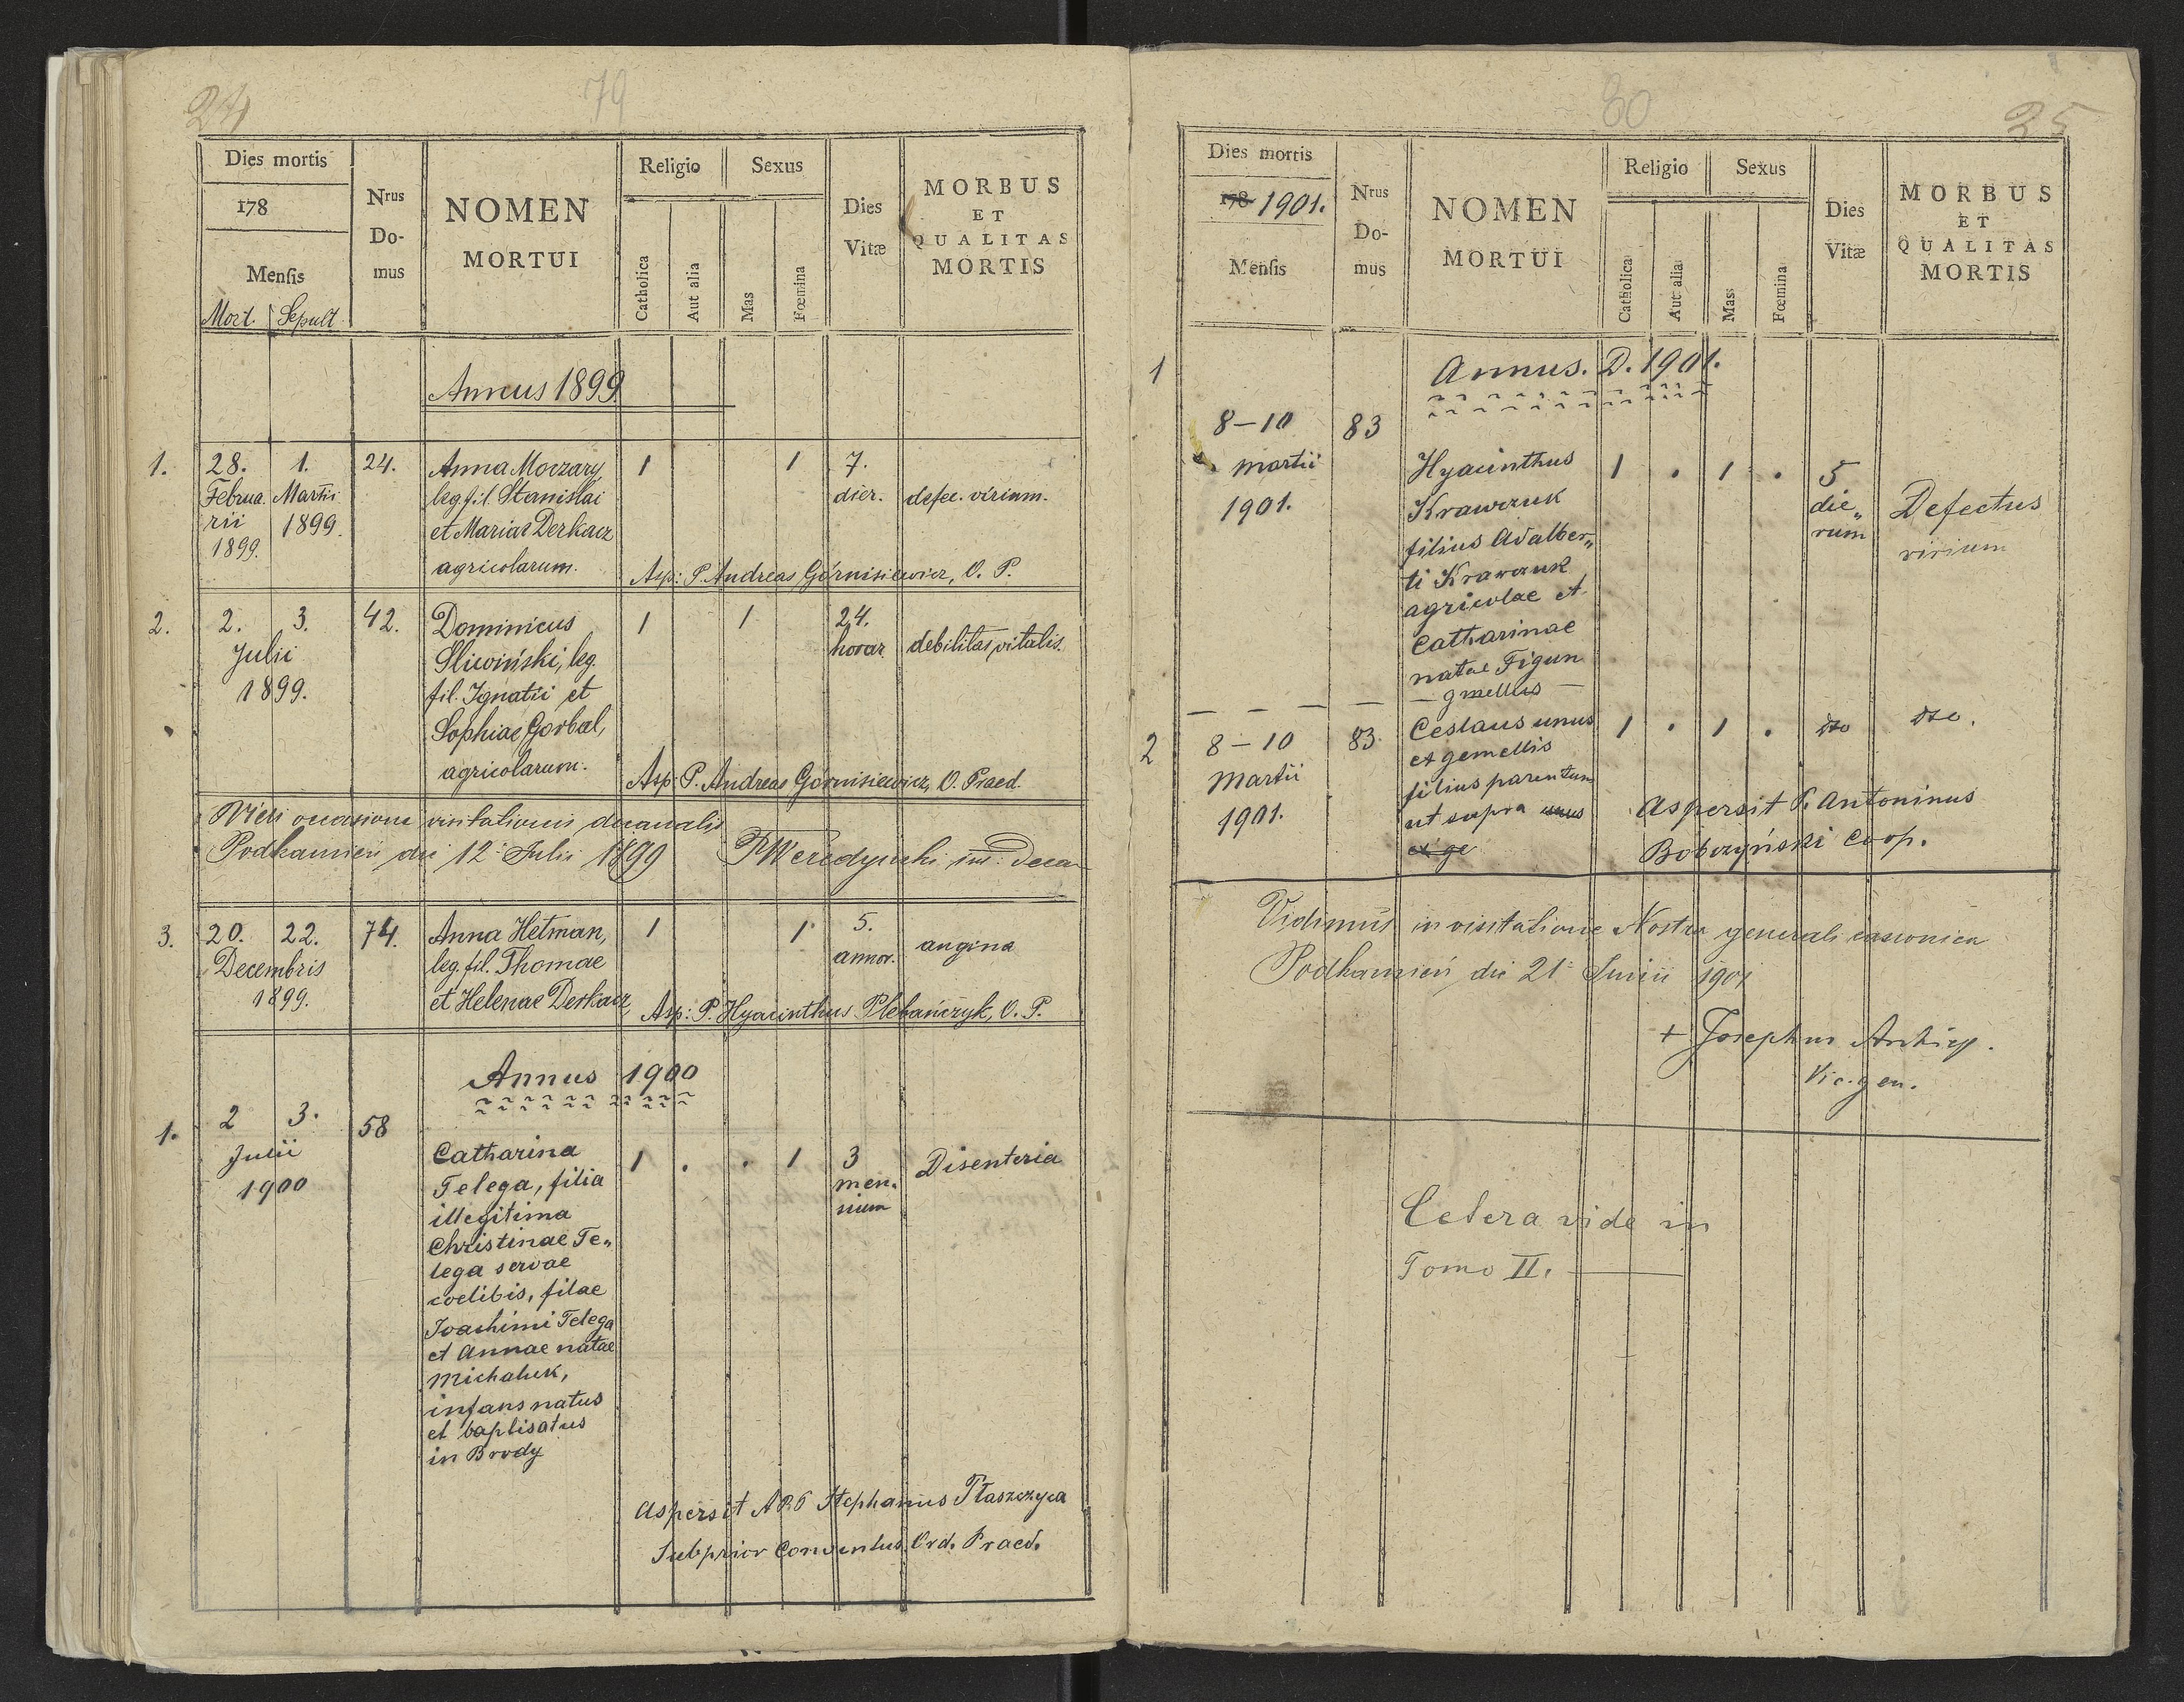 24
79
Dies mortis
178
Mensis
Mort. Sepult.
Nrus
Do-
mus
NOMEN
MORTUI
Religio
Catholica
Aut alia
Sexus
Mas
Fœmina
Dies
Vitæ
MORBUS
ET
QUALITAS
MORTIS
Annus 1899
1. 28. 1. 24. Anna Moczary 1 1 7.
Februa Martii leg. fil. Stanislai dier. defec. virium.
rii 1899. et Mariae Derkacz
1899.
agricolarum. Asp: P. Andreas Górnisiewicz, O. P.
2. 2. 3. 42. Dominicus 1 1 24.
Julii Śliwiński, leg. horar. debilitas vitalis.
1899. fil. Ignatii et
Sophiae Gorbal,
agricolarum. Asp: P. Andreas Górnisiewicz, O. Praed.
Vidi occasione visitationis decanalis
Podkamień die 12 Julii 1899
3. 20. 22. 74. Anna Hetman, 1 1 5.
Decembris leg. fil. Thomae annor. angina
1899. et Helenae Derkacz Asp: P. Hyacinthus Plebańczyk, O. P.
Annus 1900
1. 2 3. 58
Julii Catharina 1 . . 1 3 Disenteria
1900 Telega, filia men„
illegitima sium
Christinae Te„
lega servae
coelibis, filae
Joachimi Telega
et Annae natae
Michaluk,
infans natus
et baptisatus
in Brody
Aspersit A R P Stephanus Płaszczyca
Subprior Conventus Ord. Praed.
80
25
Dies mortis
178 1901.
Mensis
Nrus
Do-
mus
NOMEN
MORTUI
Religio
Catholica
Aut alia
Sexus
Mas
Fœmina
Dies
Vitæ
MORBUS
ET
QUALITAS
MORTIS
1 Annus. D. 1901.
8–10 83
Martii Hyacinthus 1 . 1 . 5
1901. Krawczuk die„ Defectus
filius Adalber„ rum virium
ti Krawczuk
agricolae et
Catharinae
natae Figun
– gmellus –
2 8–10 83. Ceslaus unus 1 . 1 . dto dto.
Martii ex gemellis
1901. filius parentum
ut supra unus Aspersit P. Antoninus
ex ge Bobczyński Coop.
Vidimus in visitatione Nostra generali canonica
Podkamień die 21 Junii 1901
+ Josephus Archiep.
Vic. gen.
Cetera vide in
Tomo II.